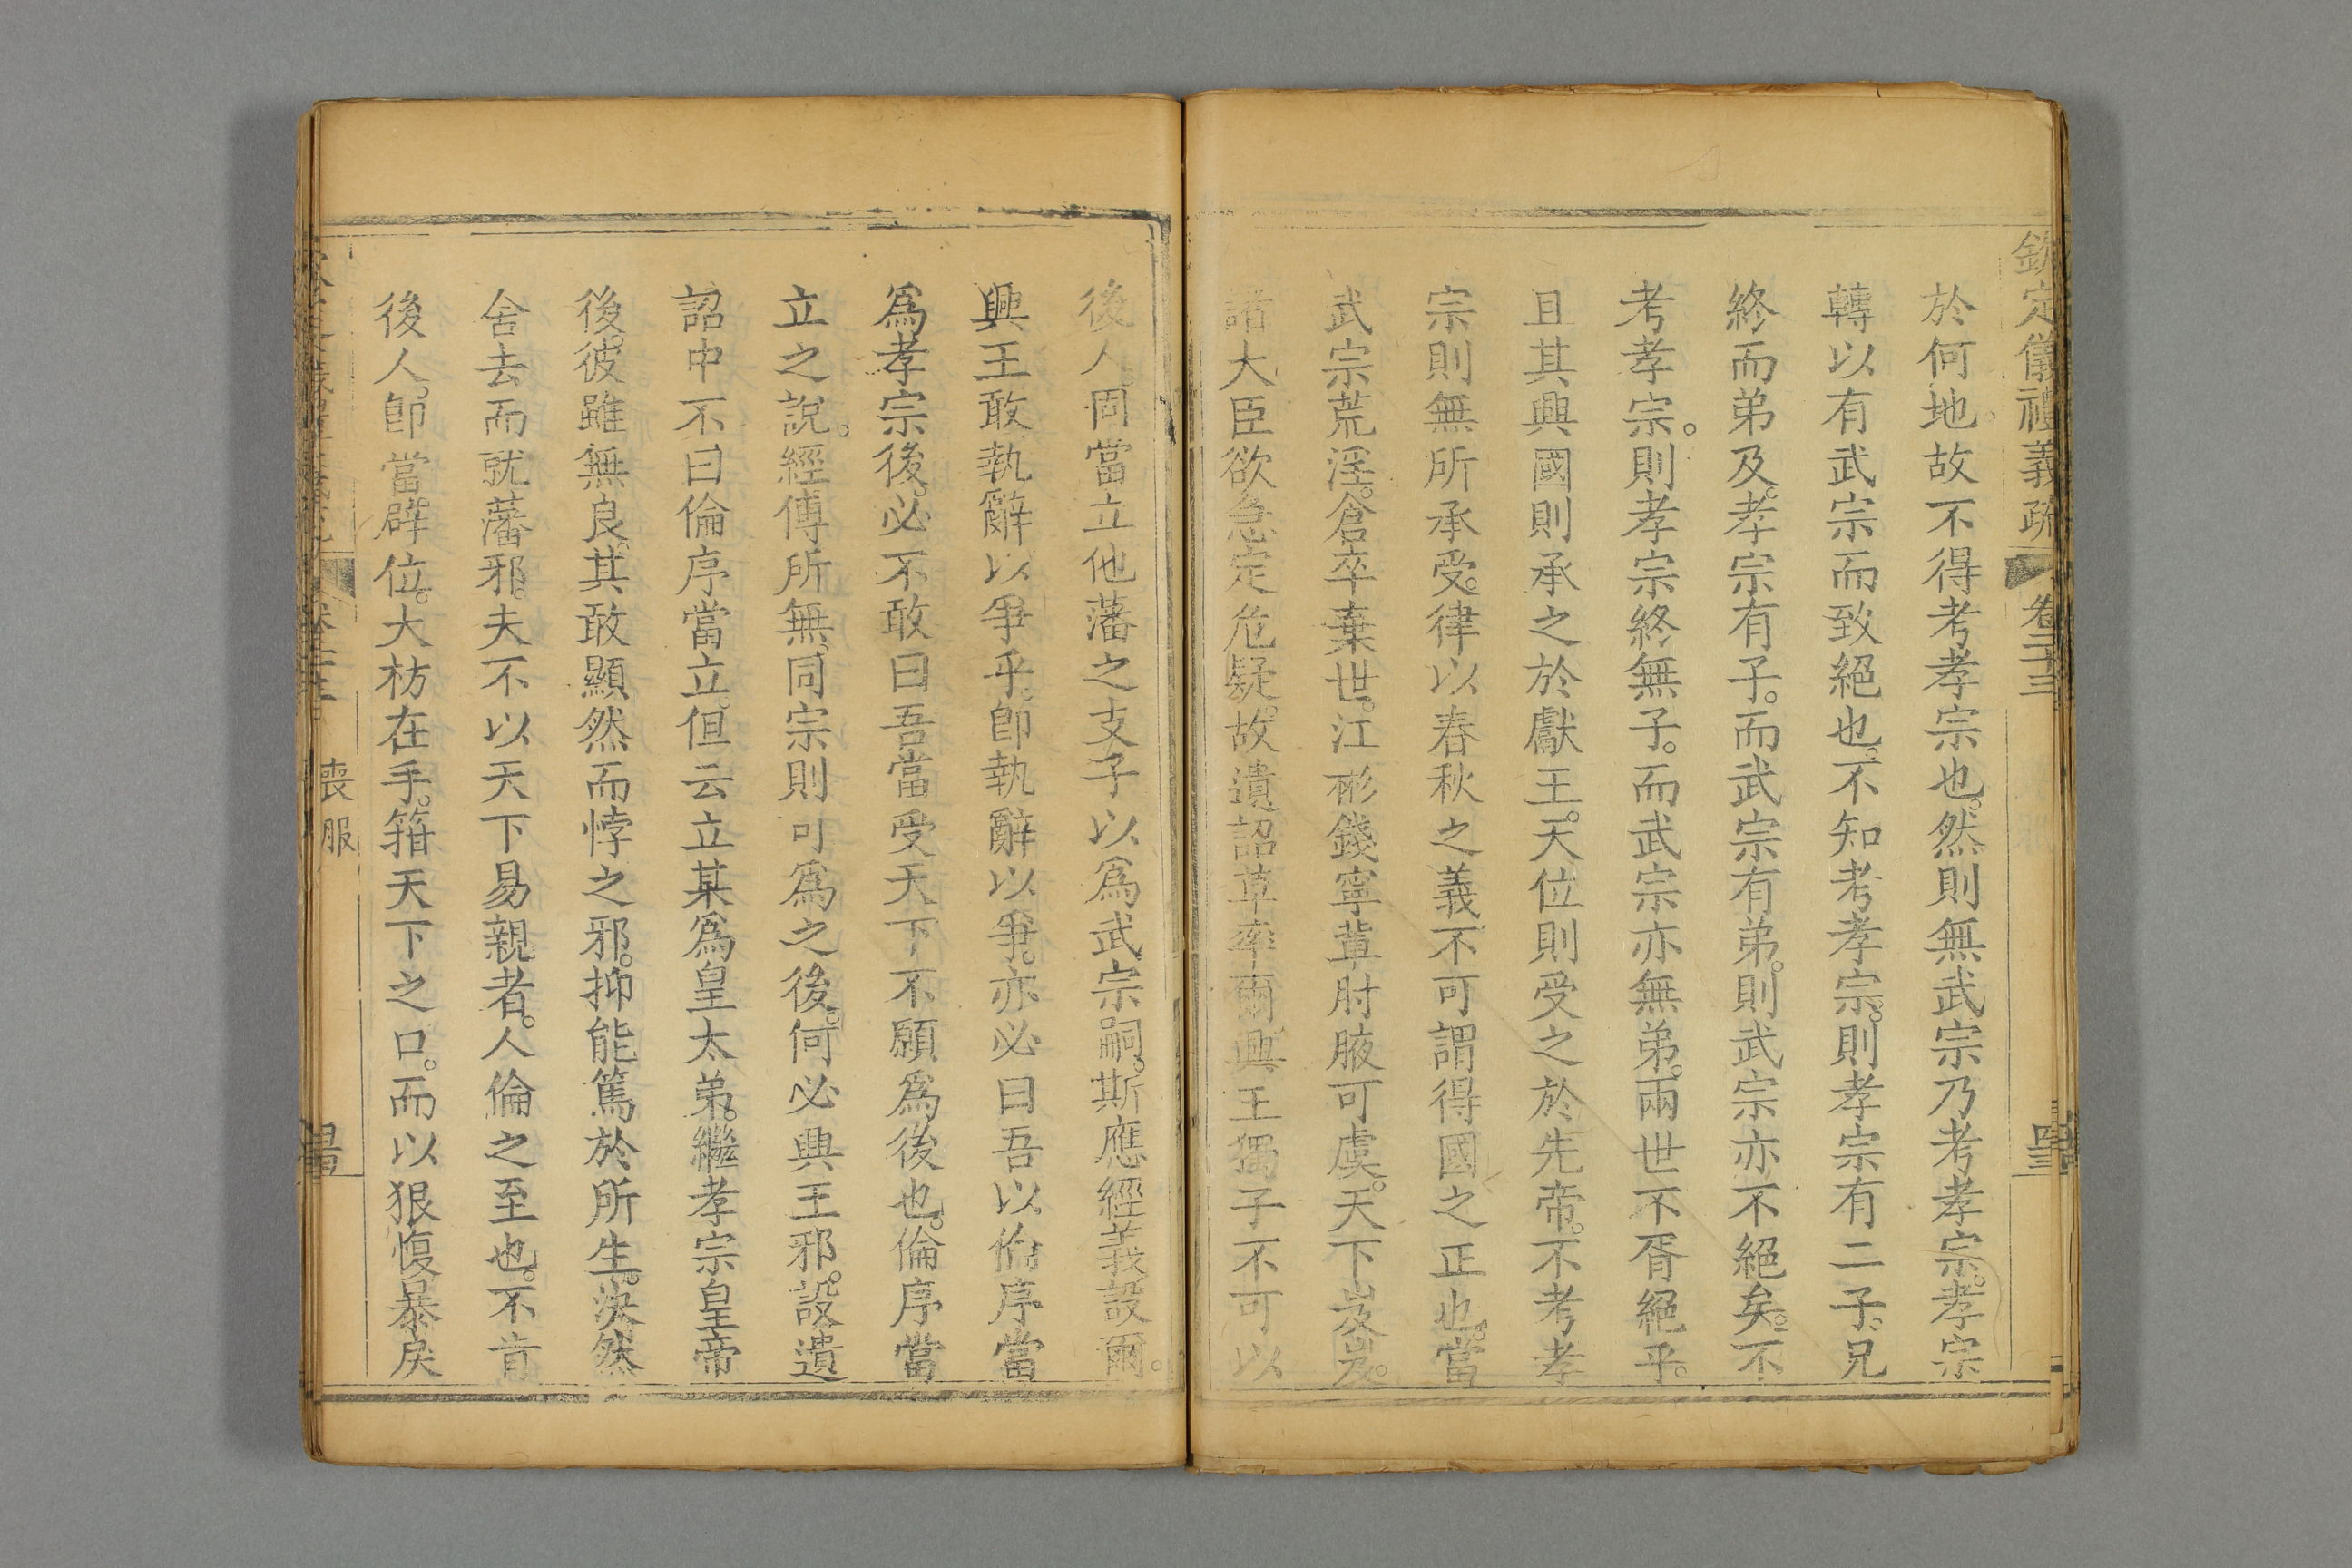 欽定儀禮義疏 卷二十三
於何地。故不得考孝宗也。然則無武宗乃考孝宗。孝宗
轉以有武宗而致絕也。不知考孝宗。則孝宗有二子。兄
終而弟及。孝宗有子。而武宗有弟。則武宗亦不絕矣。不
考孝宗。則孝宗終無子。而武宗亦無弟。兩世不胥絕乎。
且其興國則承之於獻王。天位則受之於先帝。不考孝
宗則無所承受。律以春秋之義不可謂得國之正也。當
武宗荒淫。倉卒棄世。江彬錢寧輩肘腋可虞。天下岌岌。
諸大臣欲急定危疑。故遺詔草率爾。興王獨子不可以
後人。固當立他藩之支子以為武宗嗣。斯應經義設爾。
興王敢執辭以爭乎。卽執辭以爭。亦必曰吾以倫序當
為孝宗後。必不敢曰吾當受天下不願為後也。倫序當
立之說。經傳所無。同宗則可為之後。何必興王邪。設遺
詔中不曰倫序當立。但云立某為皇太弟。繼孝宗皇帝
後。彼雖無良。其敢顯然而悖之邪。抑能篤於所生。決然
舍去而就藩邪。夫不以天下易親者。人倫之至也。不肯
後人。卽當辟位。大枋在手。箝天下之口。而以狠愎暴戾
喪服